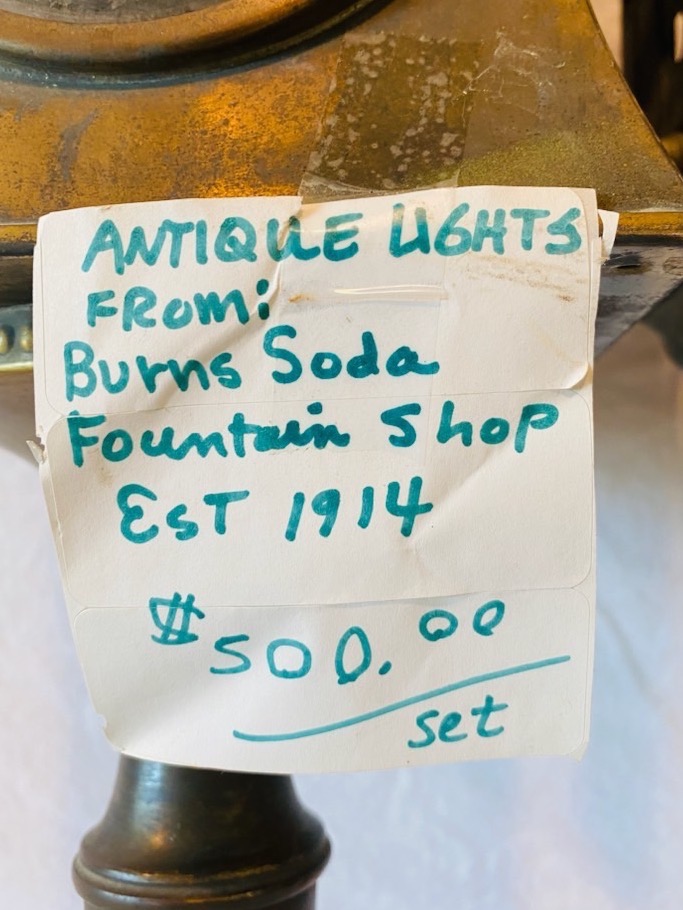 ANTIQUE LIGHTS
FROM:
Burns Soda
Fountain Shop
EST 1914
$500.00
set